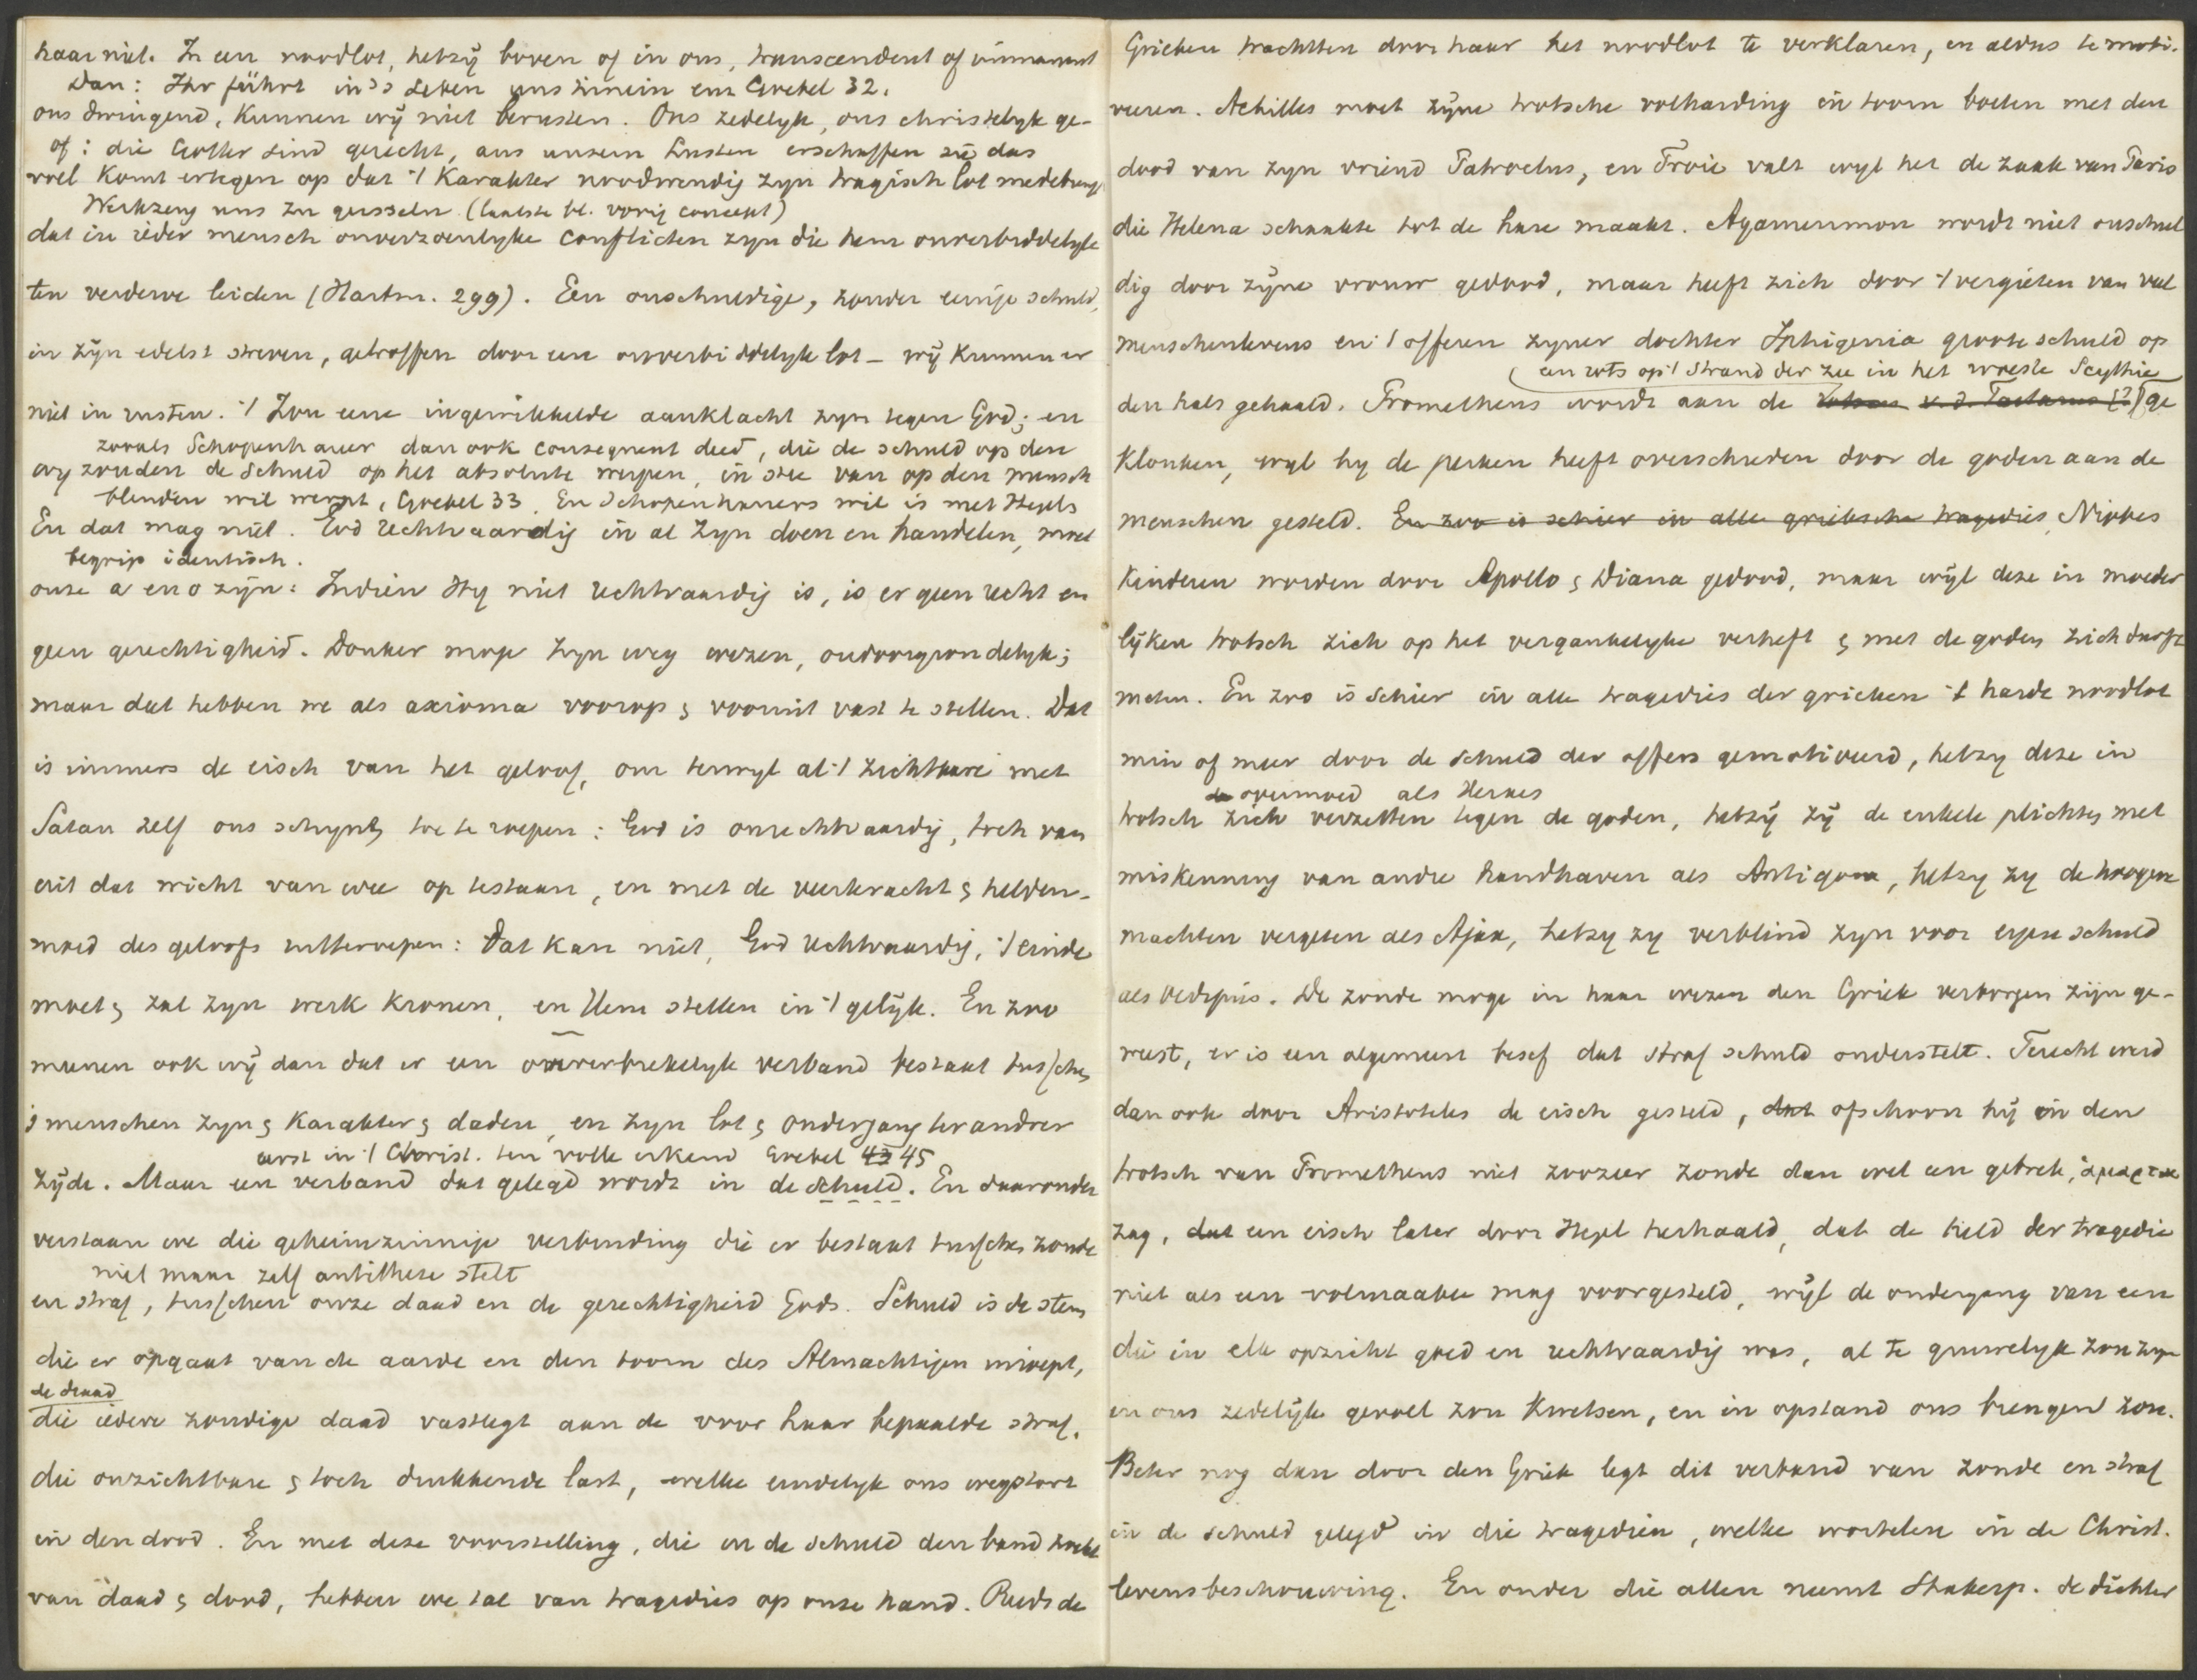 haar niet. In een noodlot, hetzij boven of in ons, transcendent of immanent
Dan: Ihr führt in's Leben uns hinein enz Grebel 32.
ons dwingend, kunnen wij niet berusten. Ons zedelyk, ons christelyk ge-
of: die Götter sind gerecht, aus unsern Lusten erschaffen sie das
voel komt ertegen op dat 't karakter noodwendig zyn tragisch lot medebreng
Werkzeug uns zu geisseln (laatste bl. vorig concept)
dat in ieder mensch onverzoenlyke conflicten zyn die hem onverbiddelyk
ten verderve leiden (Hartm. 299). Een onschuldige, zonder eenige schuld,
in zijn edelst streven, getroffen door een onverbiddelyk lot – wij kunnen er
niet in rusten. 't Zou eene ingewikkelde aanklacht zyn tegen God; en
zooals Schopenhauer dan ook consequent deed, die de schuld op den
wy zouden de schuld op het absolute werpen, in stee van op den mensch
blinden wil werpt, Grebel 33. En Schopenhauers wil is met Hegels
En dat mag niet. God rechtvaardig in al zyn doen en handelen, moet
begrip identisch.
onze a en o zijn: Indien Hy niet rechtvaardig is, is er geen recht en
geen gerechtigheid. Donker moge zyn weg wezen, ondoorgrondelyk;
maar dat hebben we als axioma voorop & vooruit vast te stellen. Dat
is immers de eisch van het geloof, om terwyl al 't zichtbare met
Satan zelf ons schynt toe te roepen: God is onrechtvaardig, toch van
uit dat wicht van wee op te staan, en met de veerkracht & helden-
moed des geloofs uitteroepen: Dat kan niet, God rechtvaardig, 't einde
moet & zal zyn werk kronen, en Hem stellen in 't gelijk. En zoo
meenen ook wij dan dat er een onverbrekelyk verband bestaat tusschen
's menschen zyn & karakter & daden, en zyn lot & ondergang ter andrer
eerst in 't Christ. ten volle erkend Grebel 43 45
zijde. Maar een verband dat gelegd wordt in de schuld. En daaronder
verstaan we die geheimzinnige verbinding die er bestaat tusschen zonde
niet maar zelf antithese stelt
en straf, tusschen onze daad en de gerechtigheid Gods. Schuld is de stem
die er opgaat van de aarde en den toorn des Almachtigen inroept,
de draad
die iedere zondige daad vastlegt aan de voor haar bepaalde straf,
die onzichtbare & toch drukkende last, welke eindelyk ons wegstort
in den dood. En met deze voorstelling, die in de schuld den band zoekt
van daad & dood, hebben we tal van tragedies op onze hand. Reeds de
Grieken trachtten door haar het noodlot te verklaren, en aldus te moti-
veeren. Achilles moet zijne trotsche volharding in toorn boeten met den
dood van zyn vriend Patroclus, en Troie valt wyl het de zaak van Paris
die Helena schaakte tot de hare maakt. Agamemnon wordt niet onschul
dig door zijne vrouw gedood, maar heeft zich door 't vergieten van veel
menschenlevens en 't offeren zyner dochter Iphigenia groote schuld op
een rots op 't strand der zee in het woeste Scythie
den hals gehaald. Prometheus wordt aan de rotsen v. d. Tartarus (?) ge
klonken, wyl hy de perken heeft overschreden door de goden aan de
menschen gesteld. En zoo is schier in alle grieksche tragedies Niobes
kinderen worden door Apollo & Diana gedood, maar wijl deze in moeder
lijken trotsch zich op het vergankelyke verheft & met de goden zich durft
meten. En zoo is schier in alle tragedies der grieken 't harde noodlot
min of meer door de schuld der offers gemotiveerd, hetzy deze in
overmoed als
trotsch zich verzetten tegen de goden, hetzij zij de enkele plichten met
miskenning van andre handhaven als Antigone, hetzy zy de hoogere
machten vergeten als Ajax, hetzy zy verblind zyn voor eigene schuld
als Oedipus. De zonde moge in haar wezen den Griek verborgen zijn ge-
weest, er is een algemeen besef dat straf schuld onderstelt. Terecht werd
dan ook door Aristoteles de eisch gesteld, dat ofschoon hij in den
trotsch van Prometheus niet zoozeer zonde dan wel een gebrek,
zag, dat een eisch later door Hegel herhaald, dat de held der tragedie
niet als een volmaakte mag voorgesteld, wijl de ondergang van een
die in elk opzicht goed en rechtvaardig was, al te gruwelyk zou zyn
en ons zedelijk gevoel zou kwetsen, en in opstand ons brengen zou.
Beter nog dan door den Griek legt dit verband van zonde en straf
in de schuld gelegd in die tragedien, welke wortelen in de Christ.
levensbeschouwing. En onder die allen neemt Shakesp. de dichter